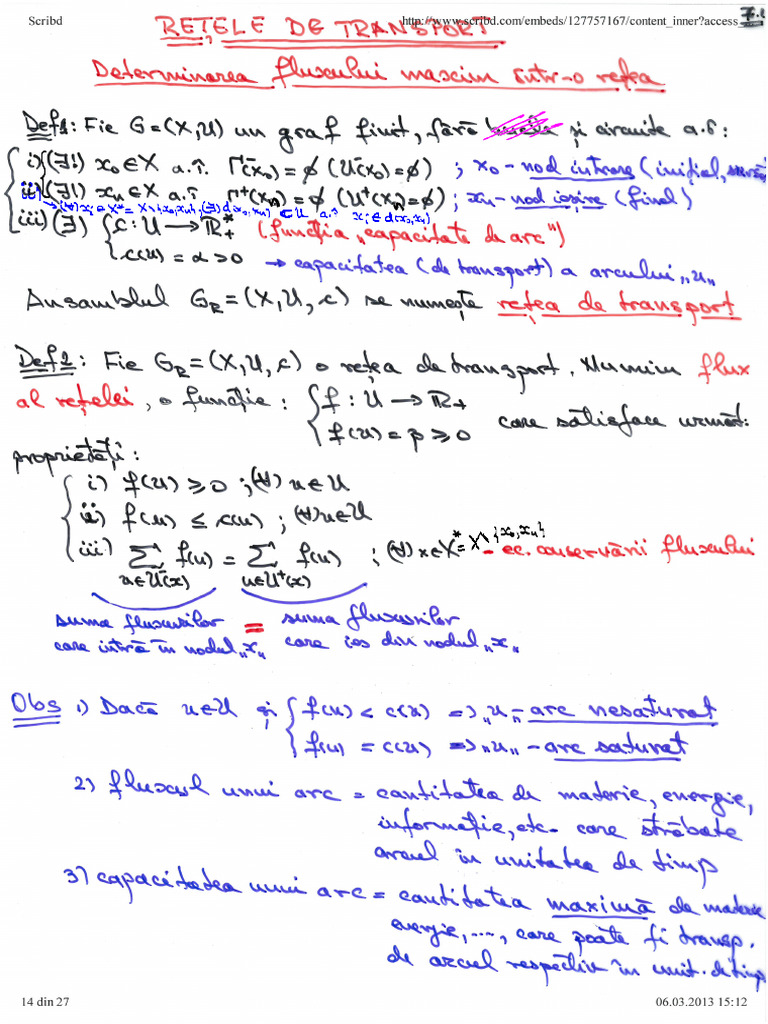 Scribd
http://www.scribd.com/embeds/127757167/content_inner?access_...
REȚELE DE TRANSPORT
Determinarea fluxului maxim într-o rețea
Def1: Fie G=(X,U) un graf finit, fără și circuite a.î:
i) (∃!) x₀∈X a.î. Γ⁻(x₀)=∅ (U⁻(x₀)=∅) ; x₀-nod intrare (inițial,
ii) (∃!) xₙ∈X a.î. Γ⁺(xₙ)=∅ (U⁺(xₙ)=∅) ; xₙ-nod ieșire (final)
→ (∀) xᵢ∈X*=X\{x₀,xₙ}, (∃) d(x₀,xₙ) ⊂ U a.î. xᵢ∈d(x₀,xₙ)
iii) (∃) { c: U → ℝ₊* (funcția „capacitate de arc")
c(u) = α > 0 → capacitatea (de transport) a arcului „u„
Ansamblul G_R=(X,U,c) se numește rețea de transport
Def2: Fie G_R=(X,U,c) o rețea de transport. Numim flux
al rețelei, o funcție: { f: U → ℝ₊
f(u) = p ⩾ 0 care satisface următ.
proprietăți:
i) f(u) ⩾ 0 ; (∀) u∈U
ii) f(u) ≤ c(u) ; (∀) u∈U
iii) ∑ f(u) = ∑ f(u) ; (∀) x∈X*=X\{x₀,xₙ} - ec. conservării fluxului
u∈U⁻(x) u∈U⁺(x)
suma fluxurilor = suma fluxurilor
care intră în nodul „x„ care ies din nodul „x„
Obs 1) Dacă u∈U și { f(u) < c(u) => „u„- arc nesaturat
f(u) = c(u) => „u„ - arc saturat
2) fluxul unui arc = cantitatea de materie, energie,
informație, etc. care străbate
arcul în unitatea de timp
3) capacitatea unui arc = cantitatea maximă de materie
energie, ...., care poate fi transp.
de arcul respectiv în unit. de timp
14 din 27
06.03.2013 15:12